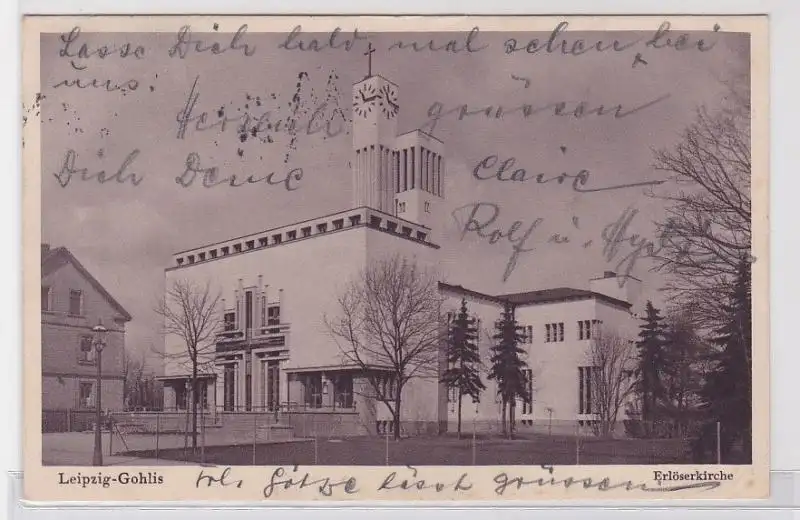 Lasse Dich bald mal sehen bei
uns. Herzlich grüssen
Dich Deine Claire
Rolf u.
Leipzig-Gohlis Frl. Götze lässt grüssen Erlöserkirche